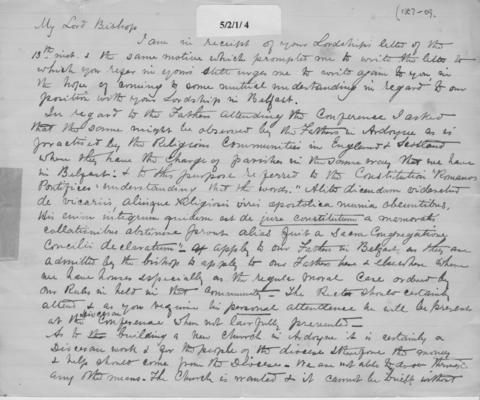 (127-09.
5/2/1/4
My Lord Bishop
I am in receipt of your Lordship's letter of the
13th inst. & the same motive which prompted me to write the letter to
which you refer in yours still urges me to write again to you in
the hope of coming to some mutual understanding in regard to our
position with your Lordship in Belfast.
In regard to the Fathers attending the Conference I asked
that the same might be observed by the Fathers in Ardoyne as is
practised by the Religious Communities in England & Scotland
where they have the Charge of parishes in the same way that we have
in Belfast: & to this purpose referred to the Constitution Romanos
Pontifices "understanding that the words." Aliter dicendum videretur
de vicariis, aliisque Religiosis viris apostolica munia obeuntibus,
His enim integrum quidem est de jure constitutum a memoratis
collationibus abstinere prout alias fuit a Sacra Congregatione
Concilii declaratum" apply to our Fathers in Belfast as they are
admitted by the bishop to apply to our Fathers elsewhere where
we have houses especially as the regular Moral Case ordered by
our Rules is held in that Community - The Rector should certainly
attend & as you require his personal attendance he will be present
at the diocesan Conference when not lawfully prevented -
As to the building a new Church in Ardoyne it is certainly a
Diocesan work & for the people of the diocese therefore the money
& help should come from the Diocese - We are not able to
any other means. The Church is wanted & it cannot be built without